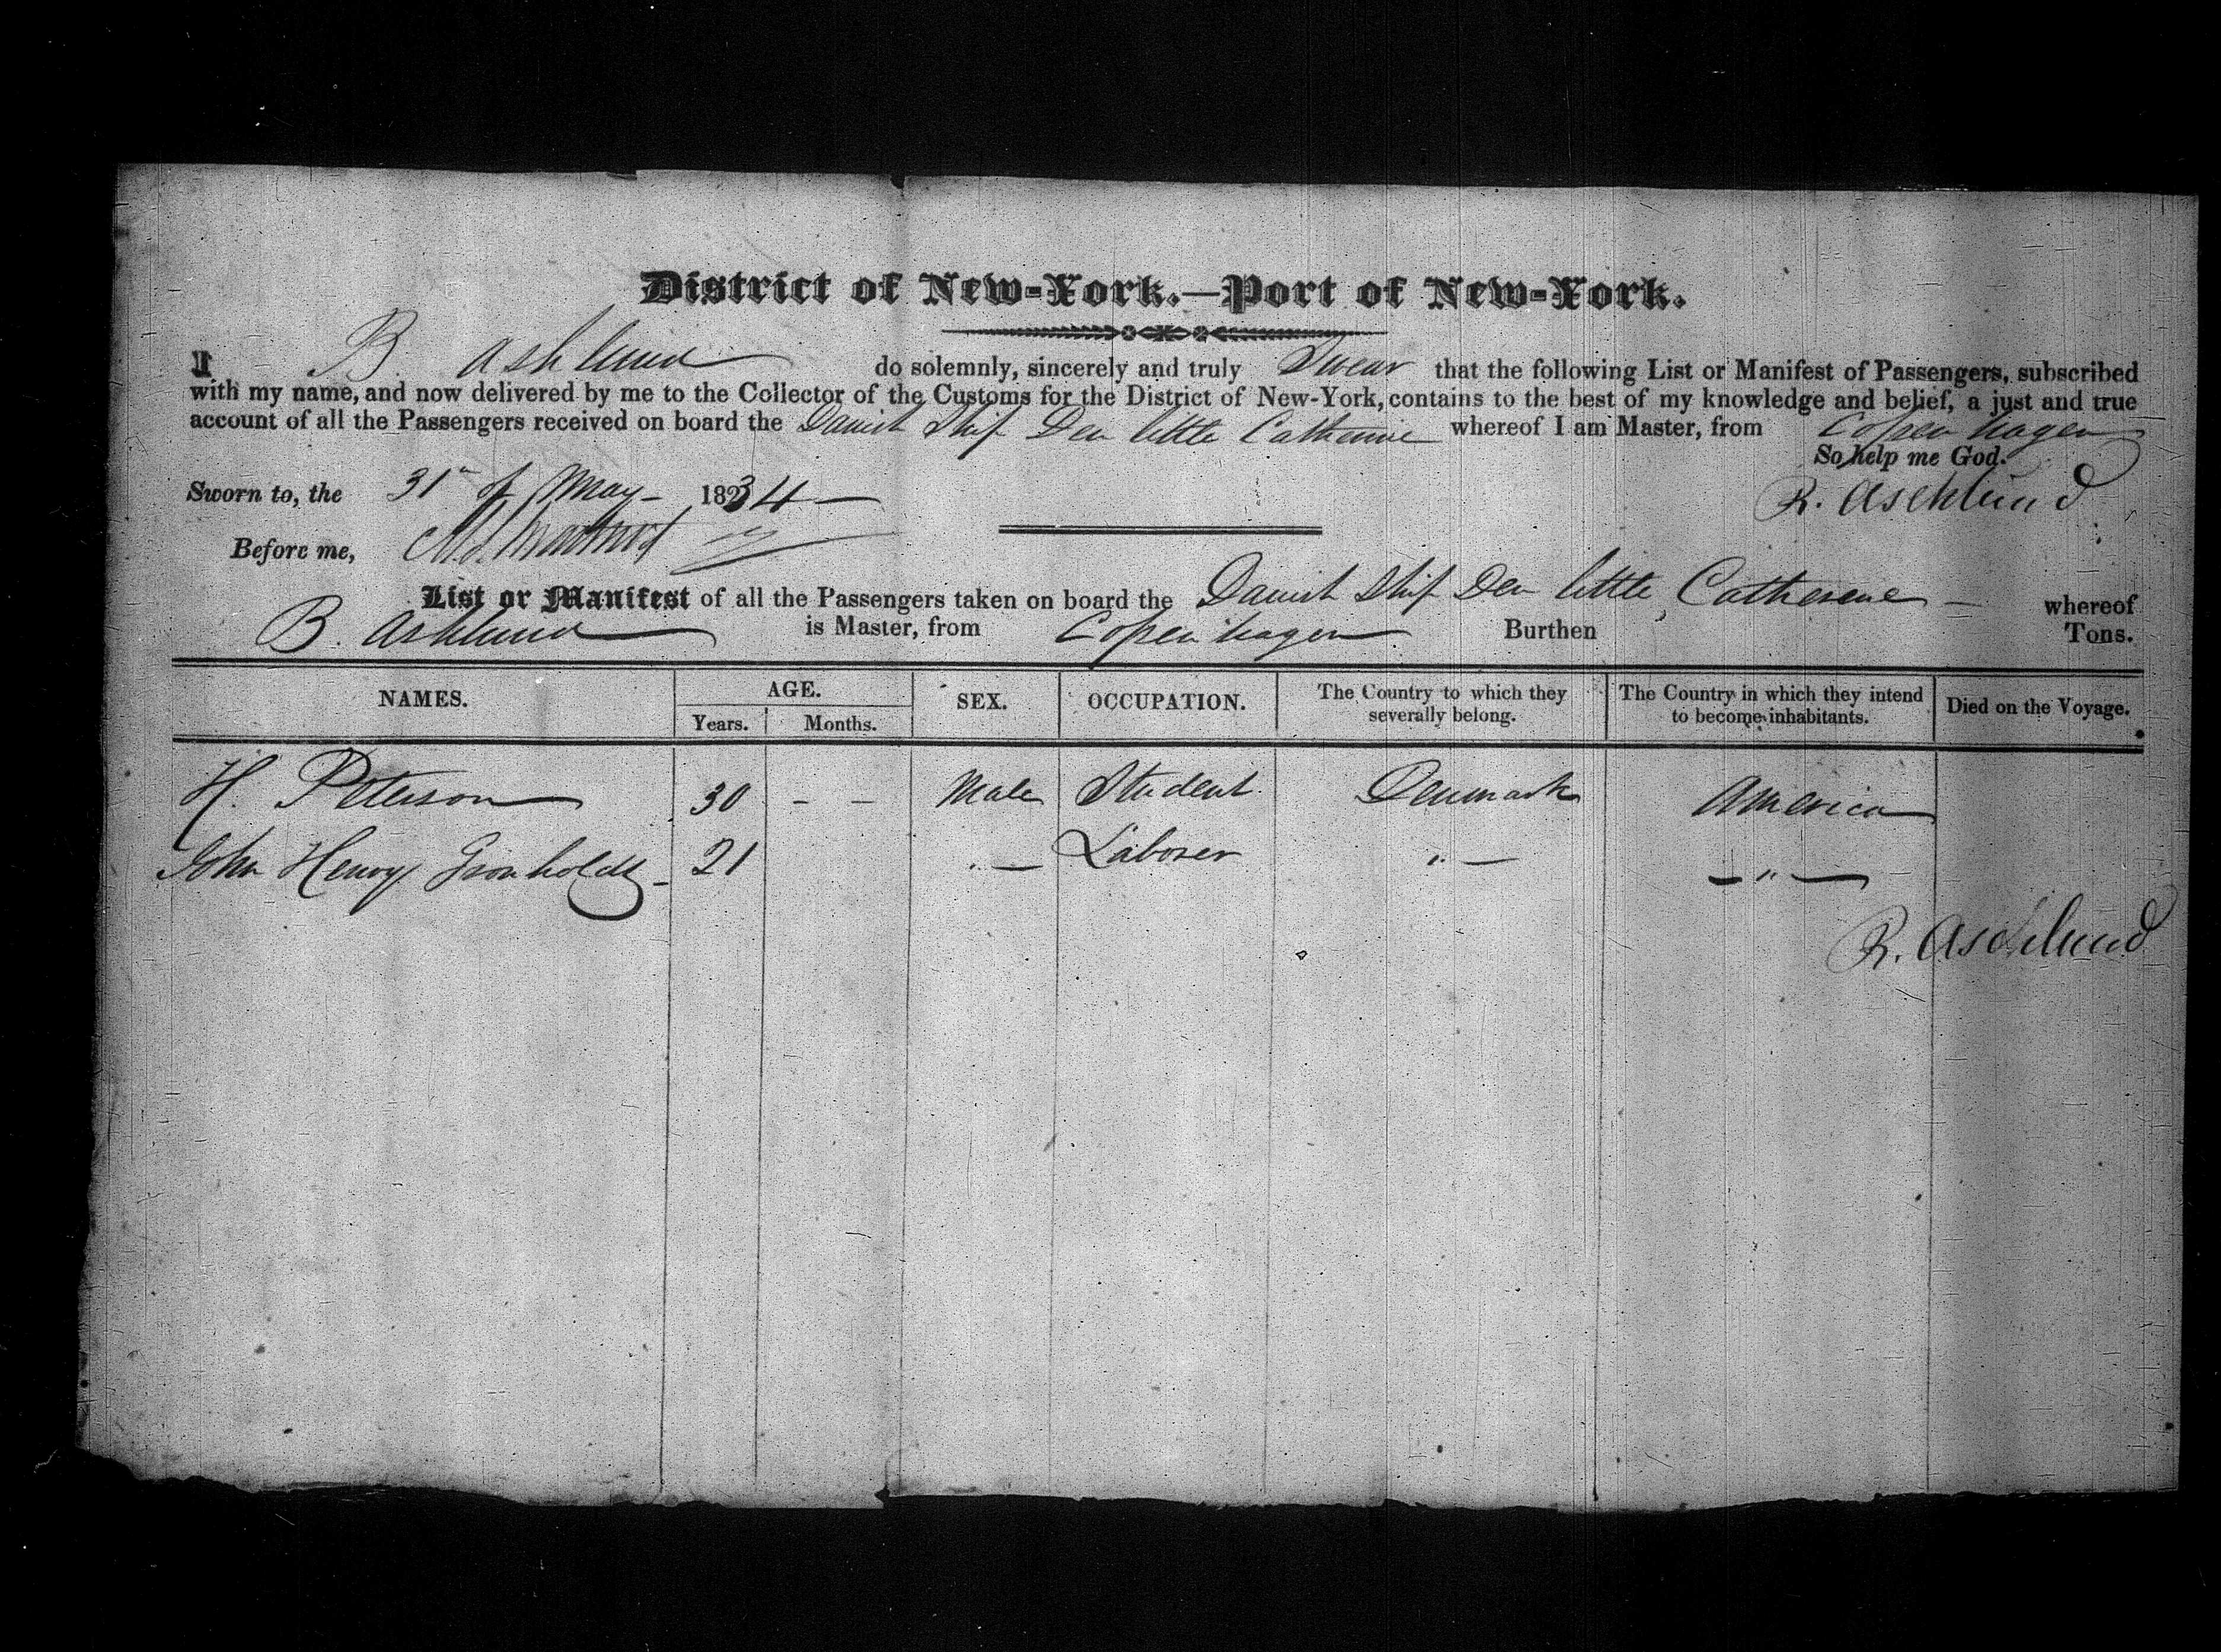 District of New-York.—Port of New-York.
I B. Ashlund do solemnly, sincerely and truly Swear that the following List or Manifest of Passengers, subscribed
with my name, and now delivered by me to the Collector of the Customs for the District of New-York, contains to the best of my knowledge and belief, a just and true
account of all the Passengers received on board the Danish Ship Den little Catherine whereof I am Master, from Copenhagen
So help me God.
Sworn to, the 31st of May 1834
R. Aschlund
Before me,
List or Manifest of all the Passengers taken on board the Danish Ship Den little Catherine whereof
B. Ashlund is Master, from Copenhagen Burthen Tons.
NAMES. AGE. SEX. OCCUPATION. The Country to which they severally belong. The Country in which they intend to become inhabitants. Died on the Voyage.
Years. Months.
H. Peterson 30 - - Male Student Denmark America
John Henry 21 " — Laborer " — — " —
R. Aschlund